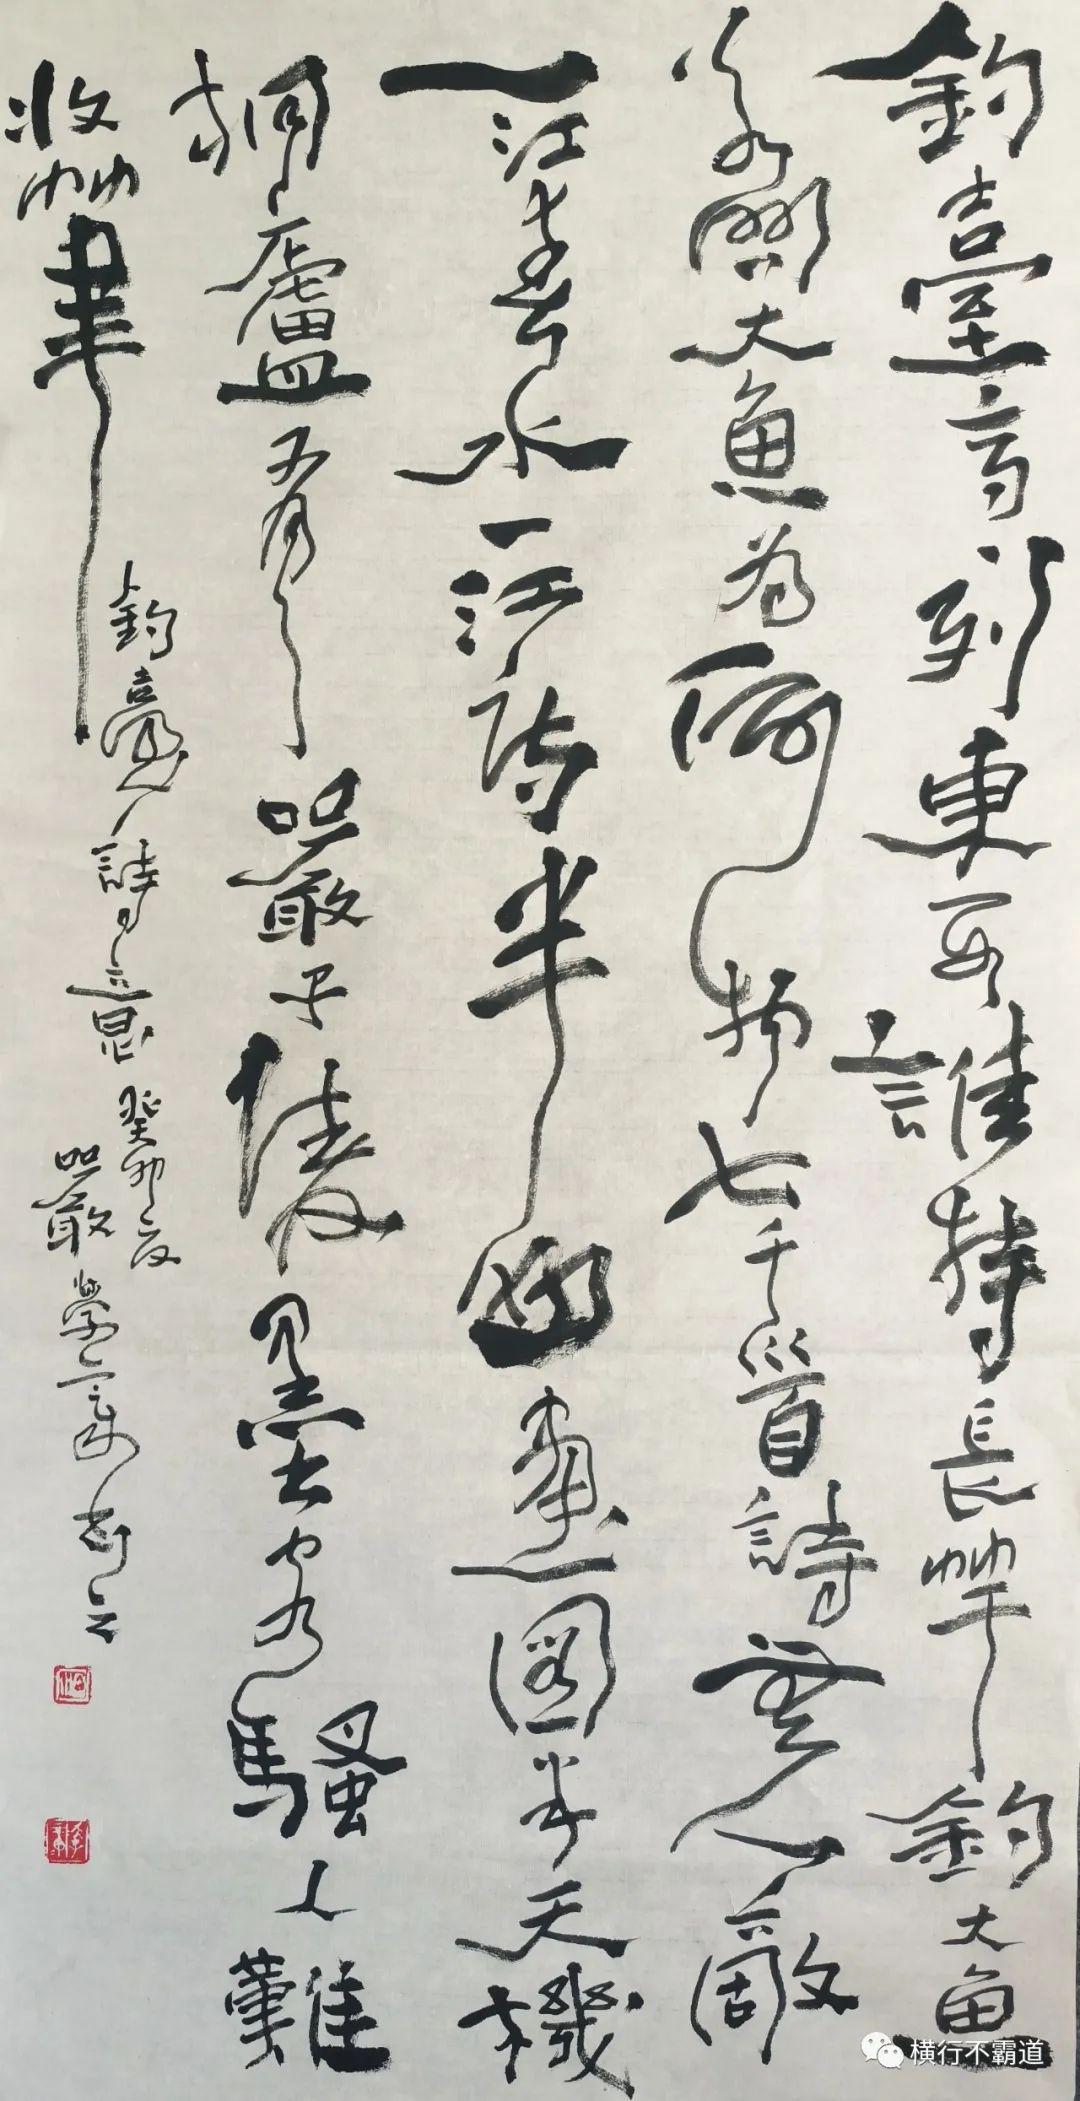 釣臺高列東西誰持長竿釣大魚
大魚為何物七千首詩無人敵
一江春水一江詩半畫圖半天機
桐廬又有嚴子陵墨客騷人難
收筆
釣臺詩意癸卯夏
嚴學
横行不霸道